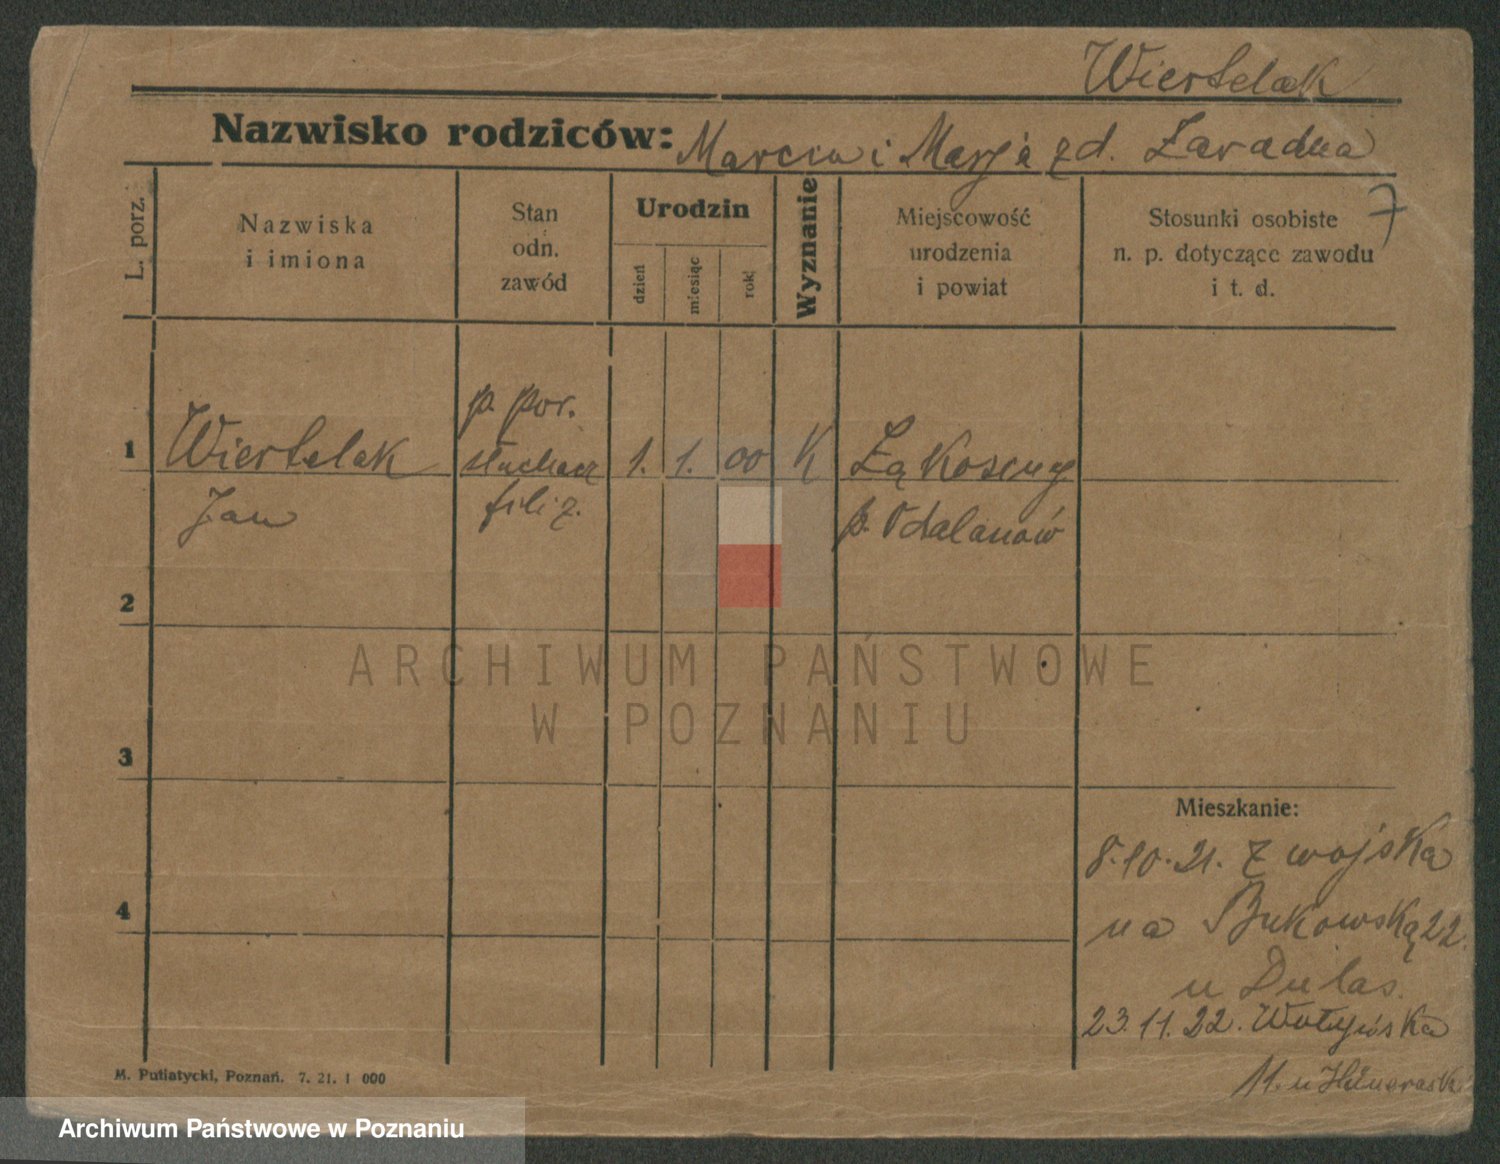 Wiertelak
Nazwisko rodziców: Marcin i Marja zd. Zaradna
7
L. porz.
Nazwiska
i imiona
Stan
odn.
zawód
Urodzin
dzień
miesiąc
rok
Wyznanie
Miejscowość
urodzenia
i powiat
Stosunki osobiste
n. p. dotyczące zawodu
i t. d.
p. por.
1 Wiertelak słuchacz 1. 1. 00 K Łąkociny
Jan filoz. p. Odalanów
2
3
4
Mieszkanie:
8.10.21. z wojska
na Bukowską 22.
u Dulas.
23.11.22. Wołyńska
11. u
M. Putiatycki, Poznań. 7. 21. 1 000
ARCHIWUM PAŃSTWOWE
W POZNANIU
Archiwum Państwowe w Poznaniu